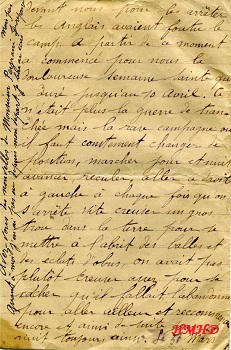 devant nous pour les arrêter
les Anglais avaient foutue le
camp. A partir de ce moment
a commencé pour nous la
douloureuse Semaine sainte qui
a duré jusqu'au 10 avril. Ce
n'était plus la guerre de tran-
chée mais la rase campagne ou
il faut constament changer de
position, marcher jour et nuit
avancer reculer aller à droite
à gauche à chaque fois qu'on
s'arrête vite creuser un gros
trou dans la terre pour se
mettre à l'abrit des balles et
des eclats d'obus, on avait pas
plutôt creuser assez pour se
cacher qu'il fallait l'abandonner
pour aller ailleur et recommencer
encore et ainsi de suite
nuit toujours ainsi. Le 31 Mars
Avez vous des nouvelles de Monsieur
HMHD